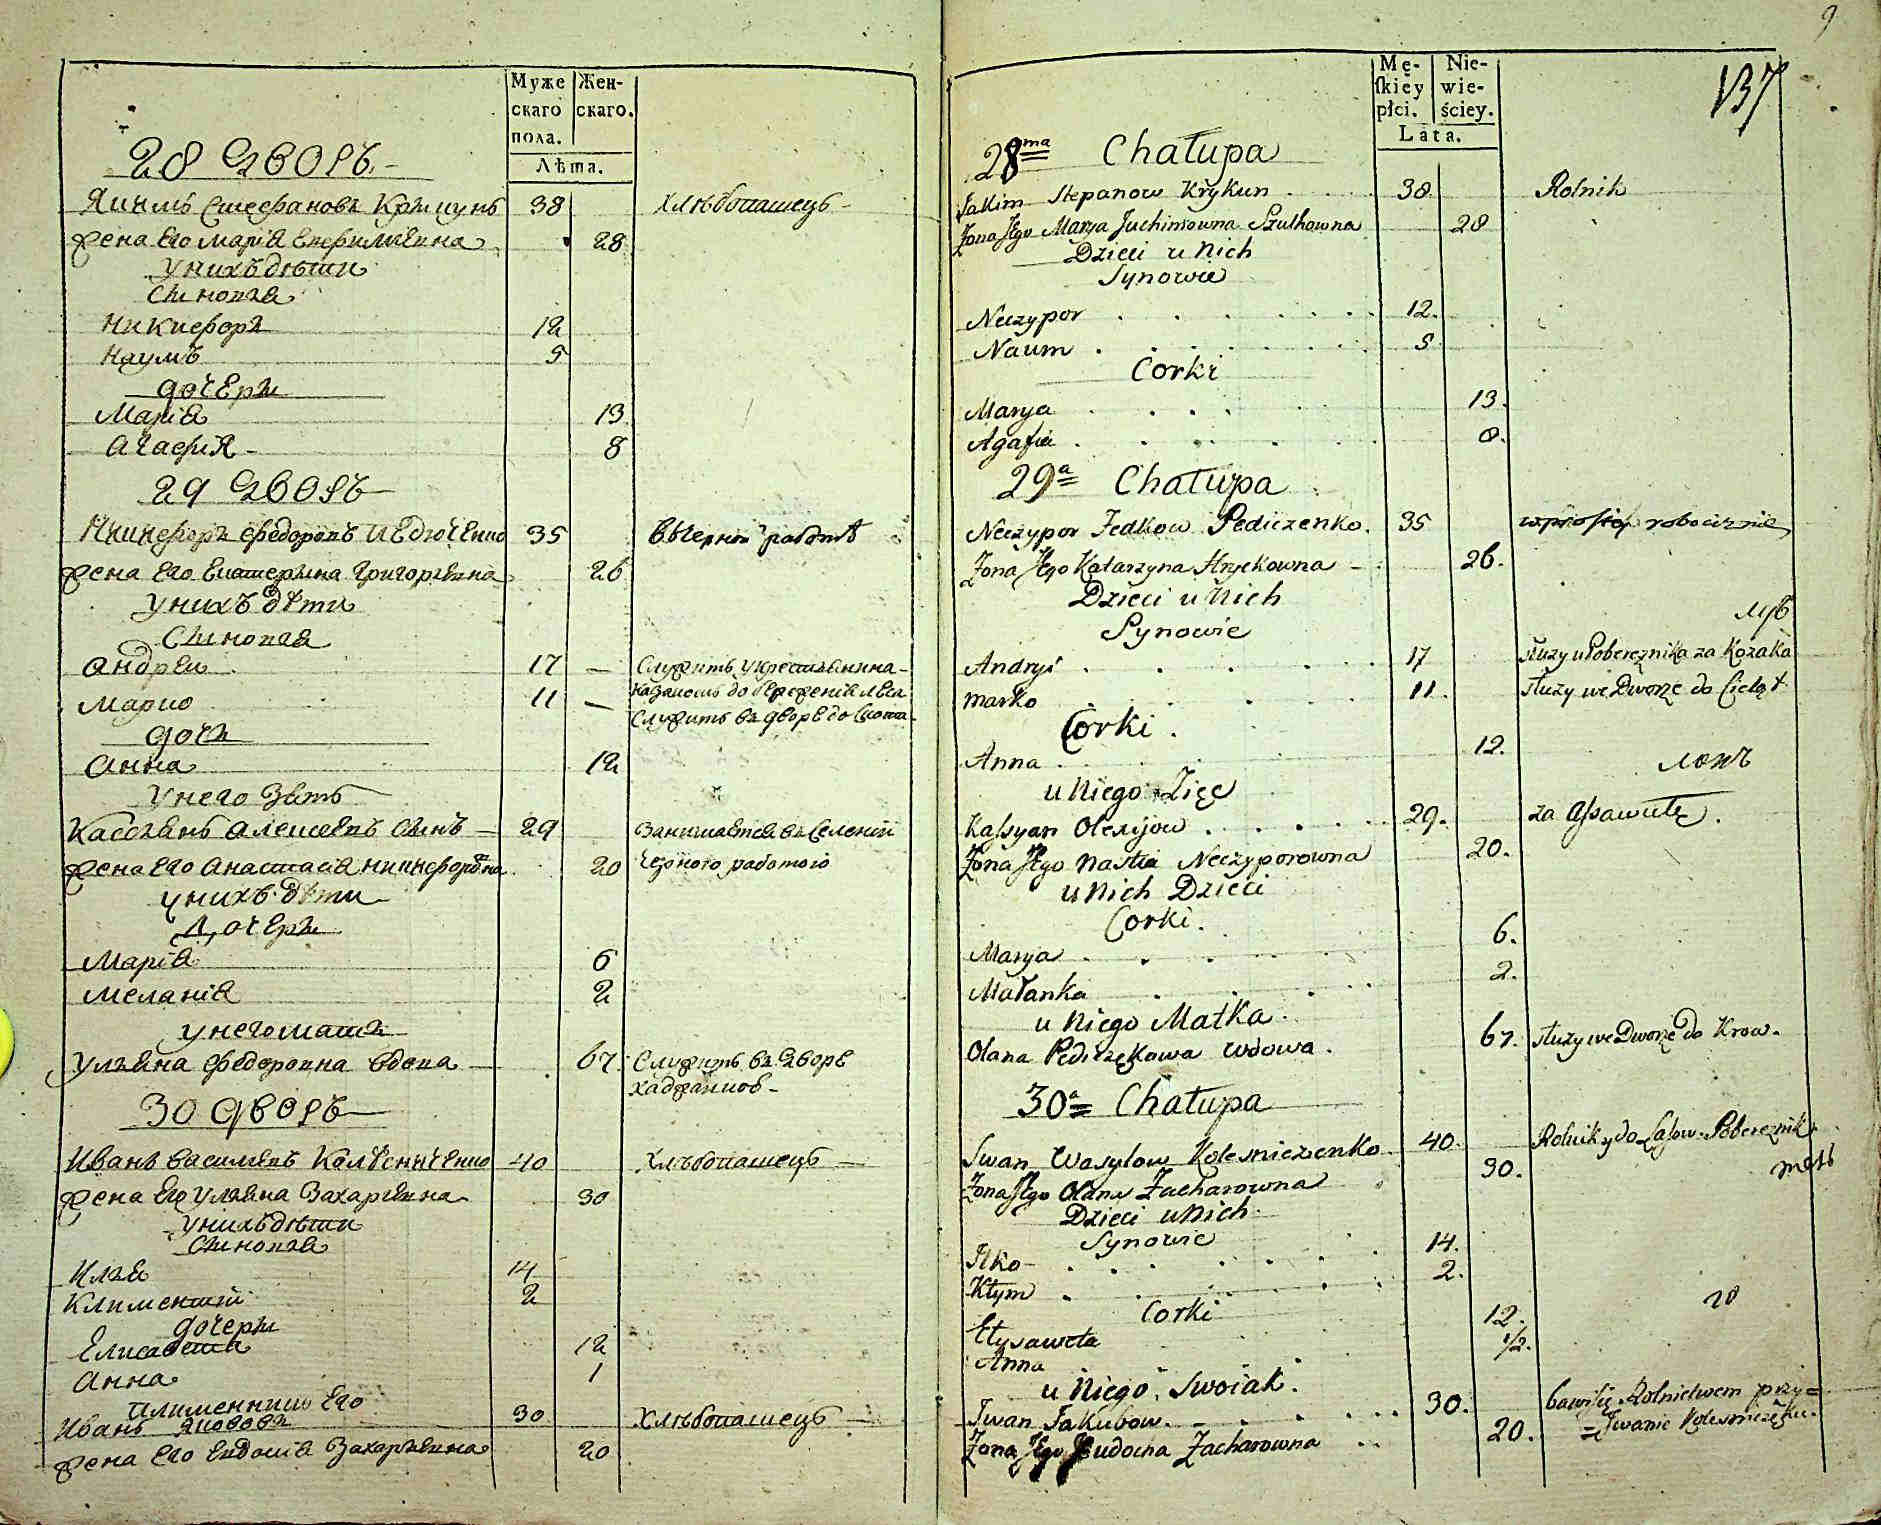 Муже
скаго
пола.
Жен-
скаго.
Лѣта.
28 Дворъ
Якимъ Стефановъ Крикунъ 38 Хлѣбопашецъ
Жена Его Марія Евфимьевна 28
У нихъ дѣти
Сыновья
Никифоръ 12
Наумъ 5
дочери
Марія 13
Агафія 8
29 Дворъ
Никифоръ Федоровъ 35 Въ Черной работѣ
Жена Его Екатерина Григорьевна 26
У нихъ дѣти
Сыновья
Андрей 17 — Служитъ у крестьянина
Казакомъ до бережения леса
Марко 11 — Служитъ въ дворѣ до скота
дочь
Анна 12
У него Зять
Кассіянъ Алексѣевъ сынъ — 29 Занимается въ Селеніи
Жена Его Анастасія Никифоровна 20 Черного работою
у нихъ дѣти
Дочери
Марія 6
Меланія 2
у него мать
Ульяна Федоровна вдова 67 Служитъ въ Дворѣ
30 Дворъ
Иванъ Васильевъ Колѣсниченко 40 Хлѣбопашецъ
Жена Его Ульяна Захарьевна 30
У нихъ дѣти
Сыновья
Илья 14
Климентій 2
дочери
Елисавета 12
Анна 1
племенникъ Его
Иванъ Якововъ 30 Хлѣбопашецъ
Жена Его Евдокія Захарьевна 20
9
137
Mę-
skiey
płci.
Nie-
wie-
ściey.
Lata.
28ma Chałupa
Jakim Stepanow Krykun 38 Rolnik
Żona Jego Marya Juchimowna Szulhowna 28
Dzieci u Nich
Synowie
Neczypor 12.
Naum 5
Corki
Marya 13.
Agafia 8.
29a Chałupa
Neczypor Fedkow Pediczenko 35 w prostey robociznie
Żona Jego Katarzyna Hryckowna 26.
Dzieci u Nich
Synowie
Andryi 17 służy u Pobereznika za Kozaka
Marko 11. służy we Dworze do Cieląt
Corki.
Anna 12.
u Niego Zięć
Kassyan Olexijow 29. za Assawułę.
Żona Jego Nastia Neczyporowna 20.
u Nich Dzieci
Corki.
Marya 6.
Małanka 2.
u Niego Matka.
Olana Pediczękowa wdowa. 67. służy we Dworze do Krow.
30a Chałupa
Iwan Wasylow Kolesniczenko 40. Rolnik y do Lasow Pobereznik
Żona Jego Olana Zacharowna 30.
Dzieci u Nich
Synowie
Ilko 14.
Kłym 2.
Corki
Ełysaweta 12.
Anna 1/2.
u Niego Swoiak.
Iwan Jakubow. 30. bawi się Rolnictwem przy=
=Iwanie Kolesniczęku.
Żona Jego Eudocha Zacharowna 20.